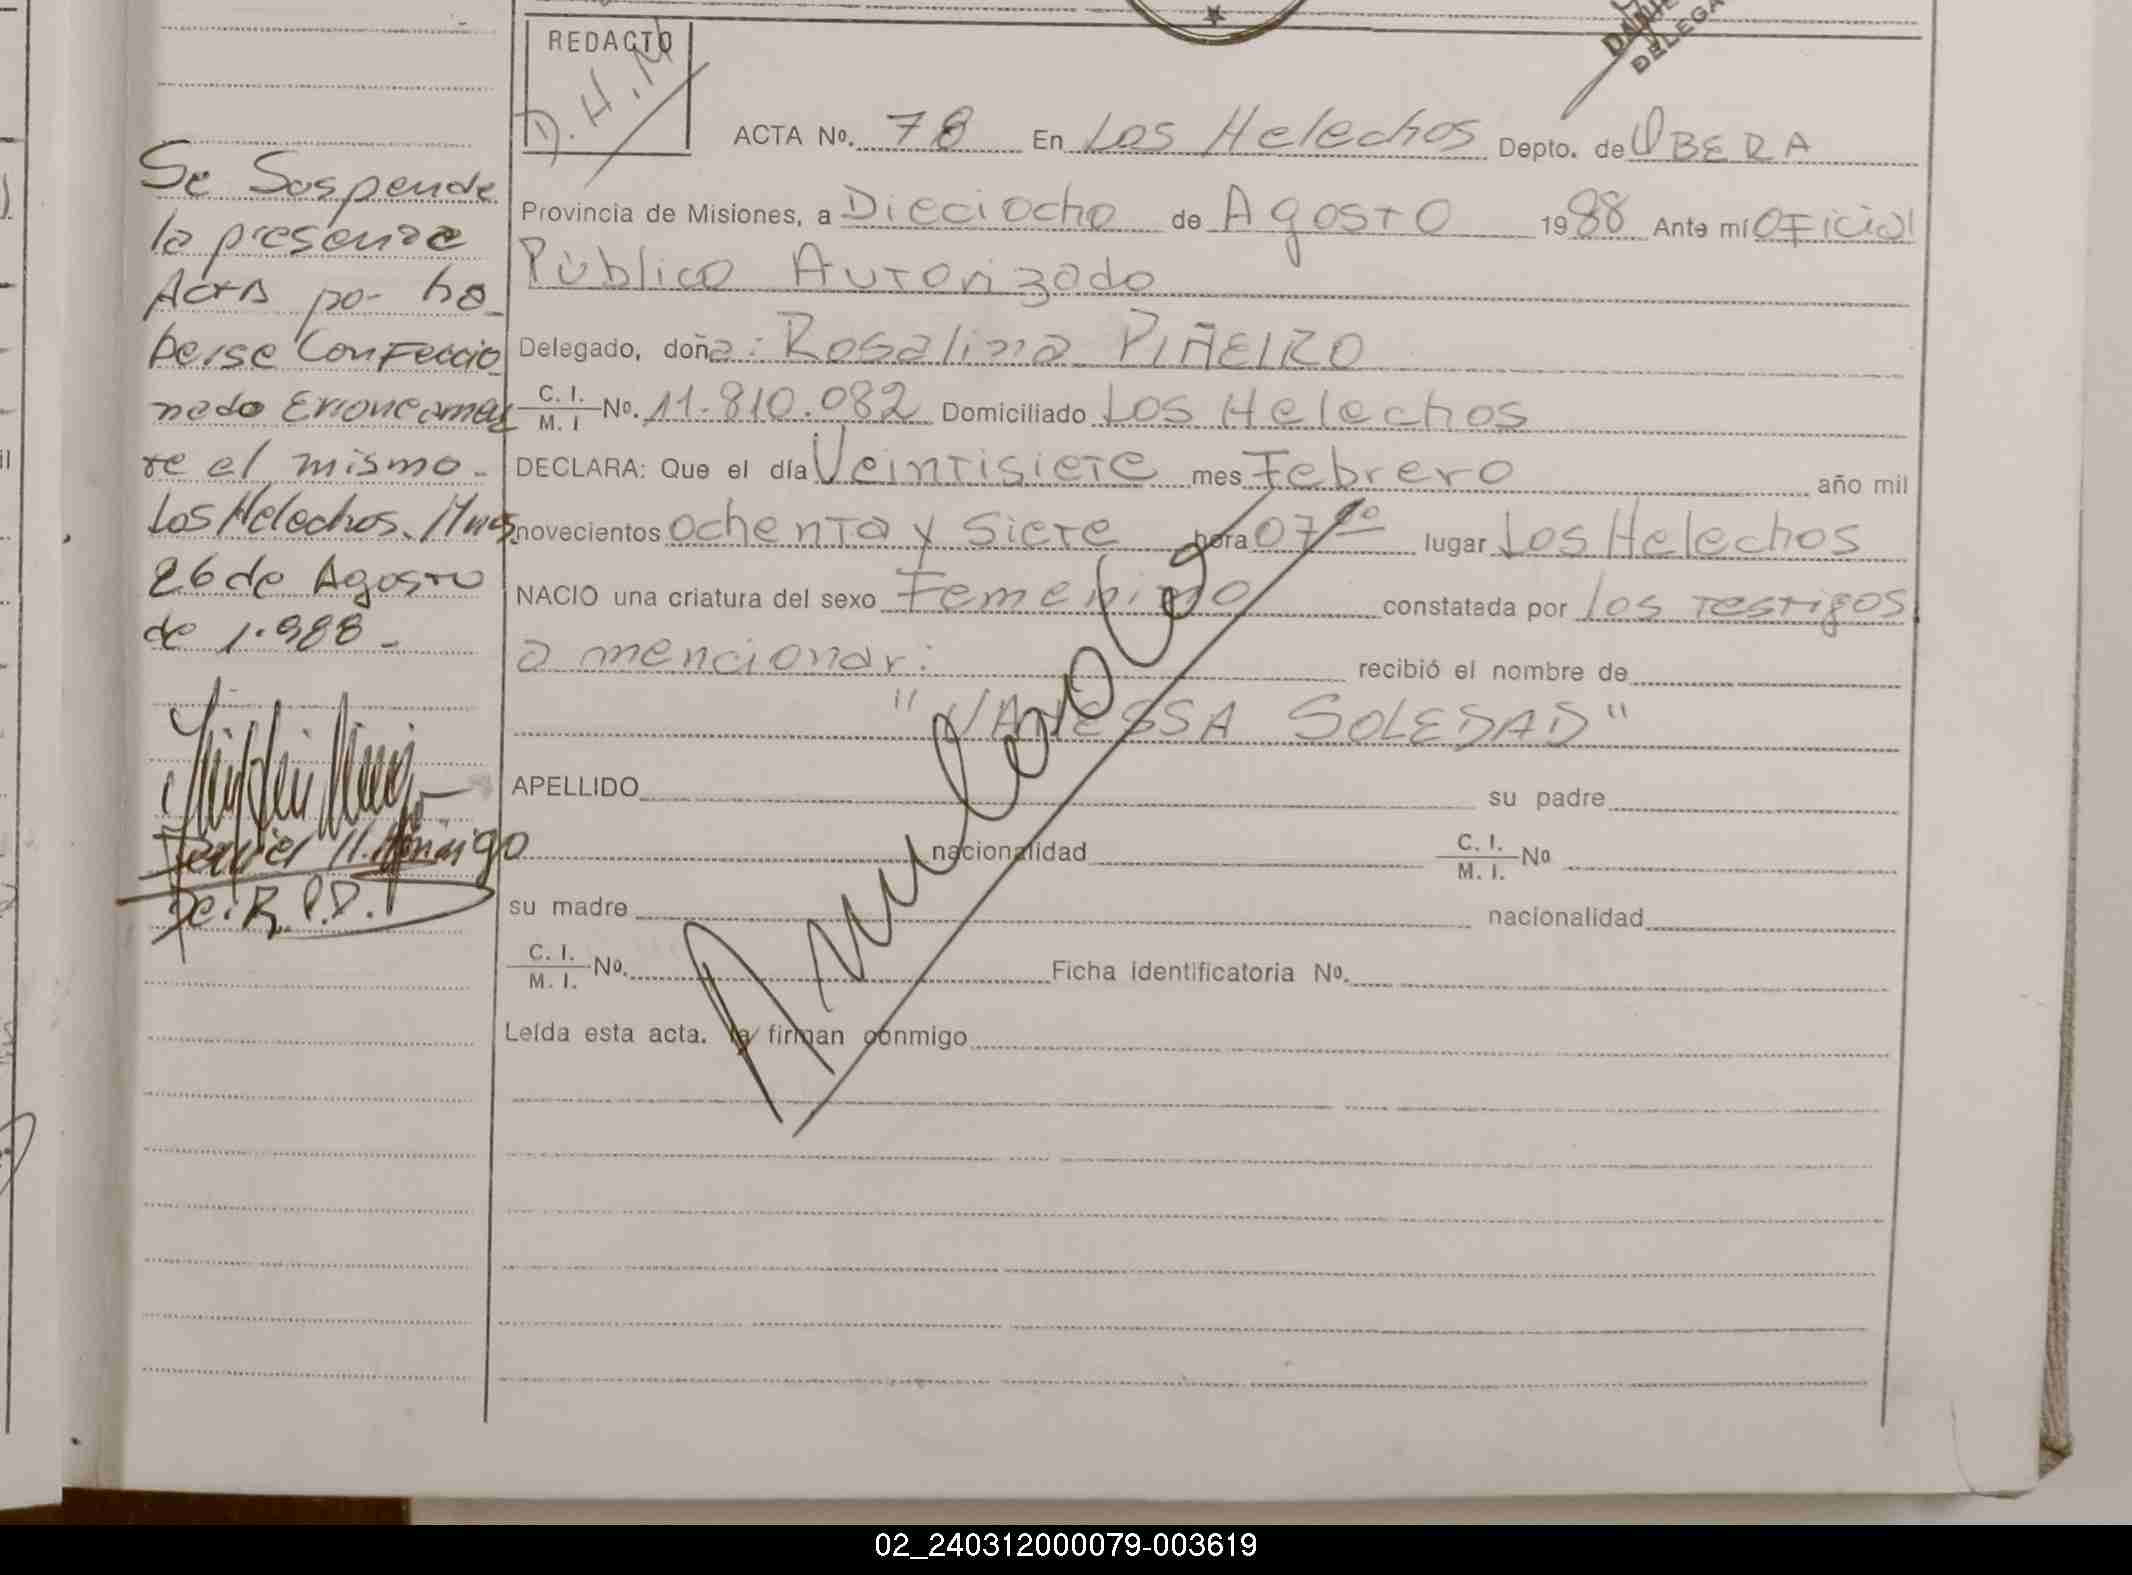 REDACTO
D.H.M
ACTA No. 78 En Los Helechos Depto. de OBERA
Provincia de Misiones, a Dieciocho de Agosto 1988 Ante mí Oficial
Público Autorizado
Delegado, doña: Rosalina PIÑEIRO
C. I. / M. I No. 11.810.082 Domiciliado Los Helechos
DECLARA: Que el día Veintisiete mes Febrero año mil
novecientos ochenta y siete hora 07 00 lugar Los Helechos
NACIO una criatura del sexo Femenino constatada por los testigos
a mencionar: recibió el nombre de
"VANESSA SOLEDAD"
APELLIDO su padre
nacionalidad C. I. / M. I. No
su madre nacionalidad
C. I. / M. I. No. Ficha identificatoria No.
Leída esta acta. la firman conmigo
Anulado
Se Suspende
la presente
Acta por ha-
berse Confeccio
nado Erroneamen
te el mismo.-
Los Helechos. Mnes.
26 de Agosto
de 1.988.-
De. R. P. D.
DELEGA
02_240312000079-003619